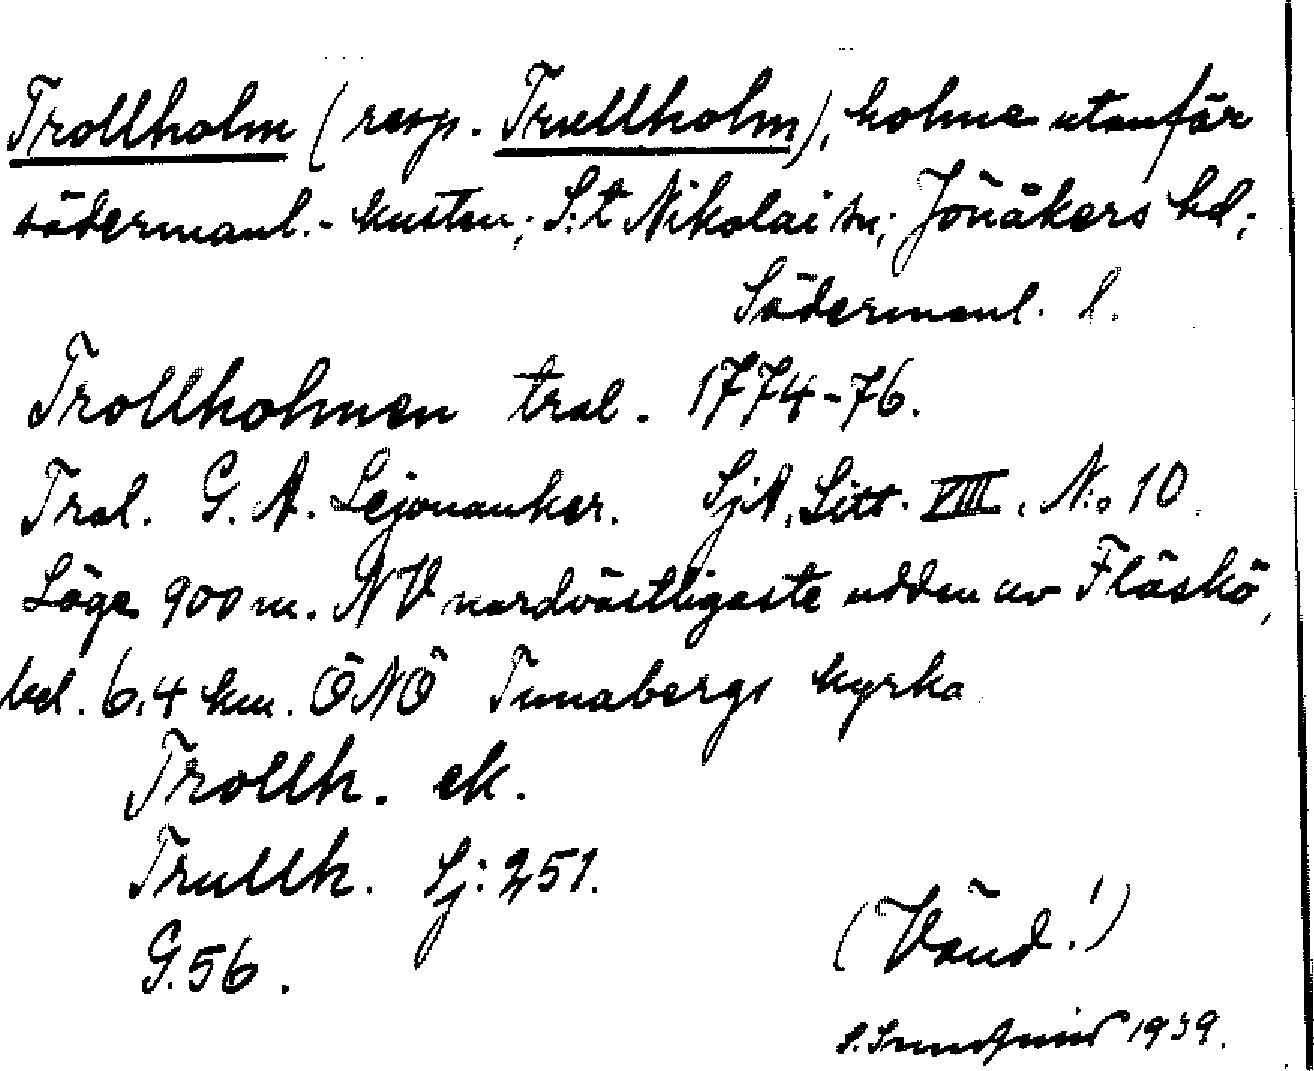 Trollholm (resp. Trullholm), holme utanför
södermanl.-kusten; S:t Nikolai sn; Jönåkers hd;
Södermanl. l.
Trollholmen tral. 1774-76.
Tral. G. A. Lejonanker. SjA. Litt. VIII. N:o 10.
Läge 900 m. NV nordvästligaste udden av Fläskö,
bel. 6,4 km. ÖNÖ Tunabergs kyrka
Trollh. ek.
Trullh. Sj: 251.
G. 56.
(Vänd!)
1939.